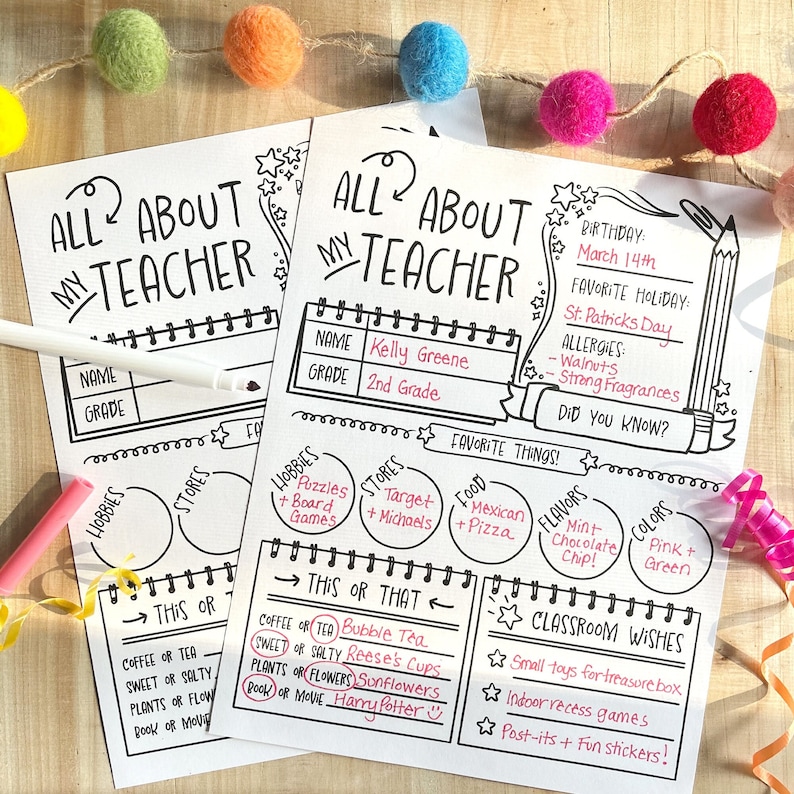 ALL ABOUT
MY TEACHER
NAME
GRADE
HOBBIES
STORES
THIS OR
COFFEE OR TEA
SWEET OR SALTY
PLANTS OR
BOOK OR MOVIE
ALL ABOUT
MY TEACHER
NAME Kelly Greene
GRADE 2nd Grade
BIRTHDAY:
March 14th
FAVORITE HOLIDAY:
St. Patricks Day
ALLERGIES:
- Walnuts
- Strong Fragrances
DID YOU KNOW?
FAVORITE THINGS!
HOBBIES
Puzzles
+ Board
Games
STORES
Target
+ Michaels
FOOD
Mexican
+ Pizza
FLAVORS
Mint
Chocolate
Chip!
COLORS
Pink +
Green
THIS OR THAT
COFFEE OR TEA Bubble Tea
SWEET OR SALTY Reese's Cups
PLANTS OR FLOWERS Sunflowers
BOOK OR MOVIE Harry Potter
CLASSROOM WISHES
Small toys for treasure box
Indoor recess games
Post-its + Fun stickers!